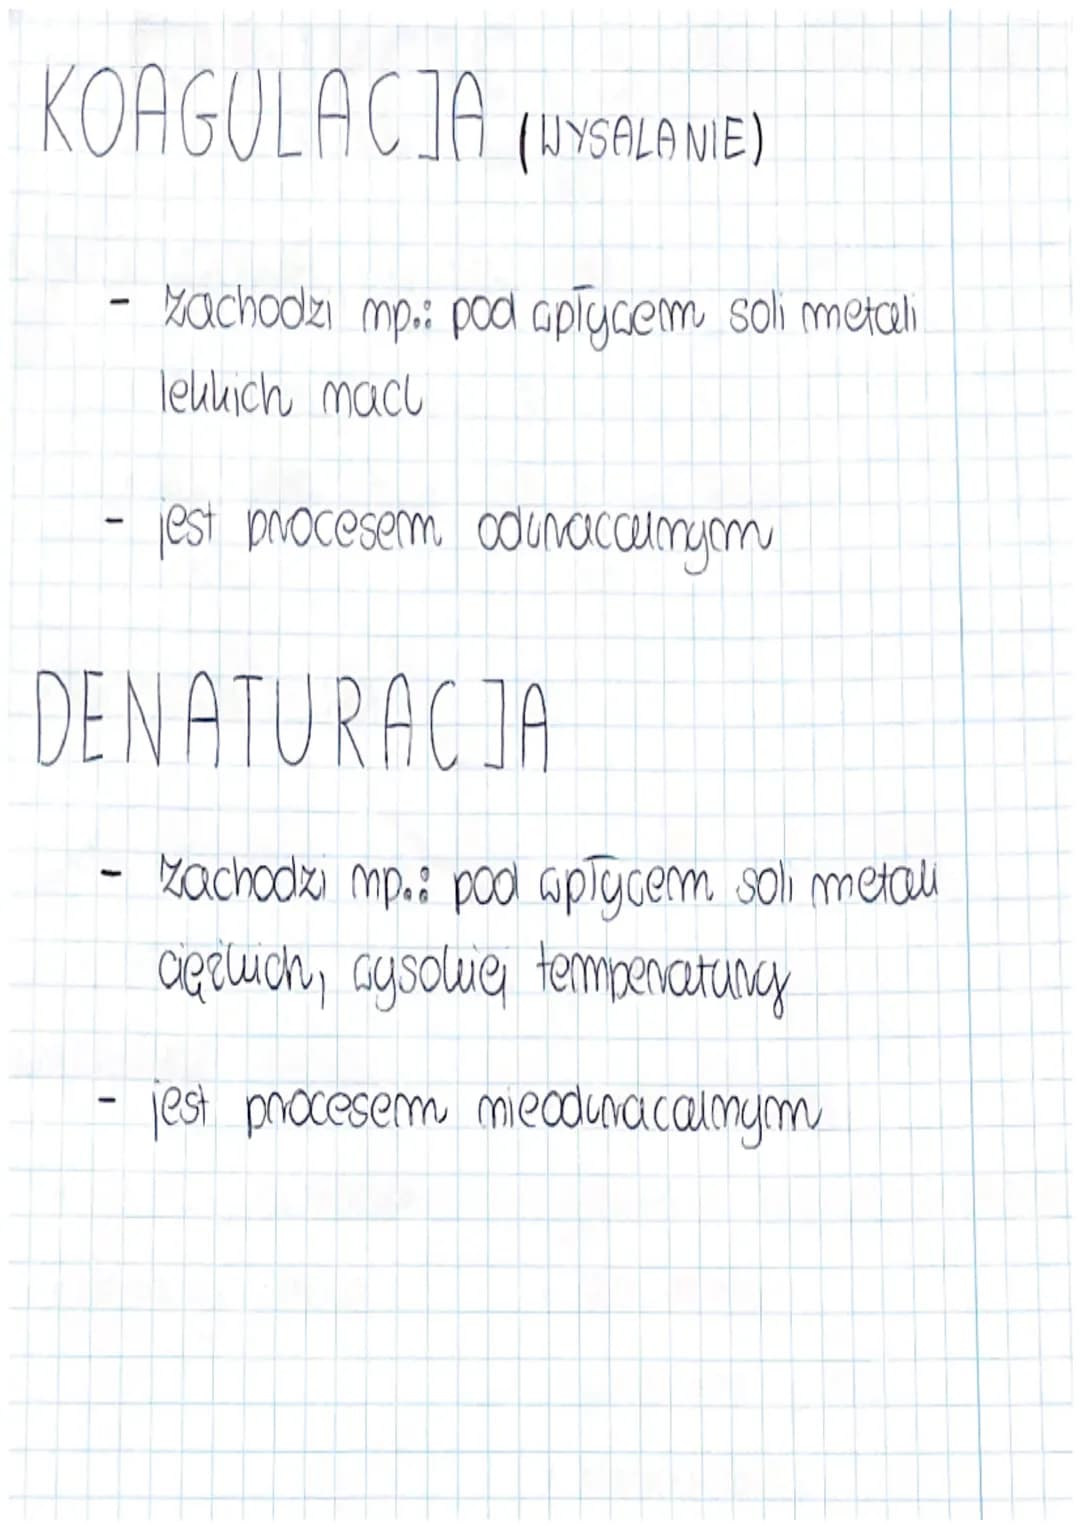 KOAGULACJA (WYSALANIE)
- zachodzi np.: pod wpływem soli metali
lekkich NaCl
- jest procesem odwracalnym
DENATURACJA
- zachodzi np.: pod wpływem soli metali
ciężkich, wysokiej temperatury
- jest procesem nieodwracalnym